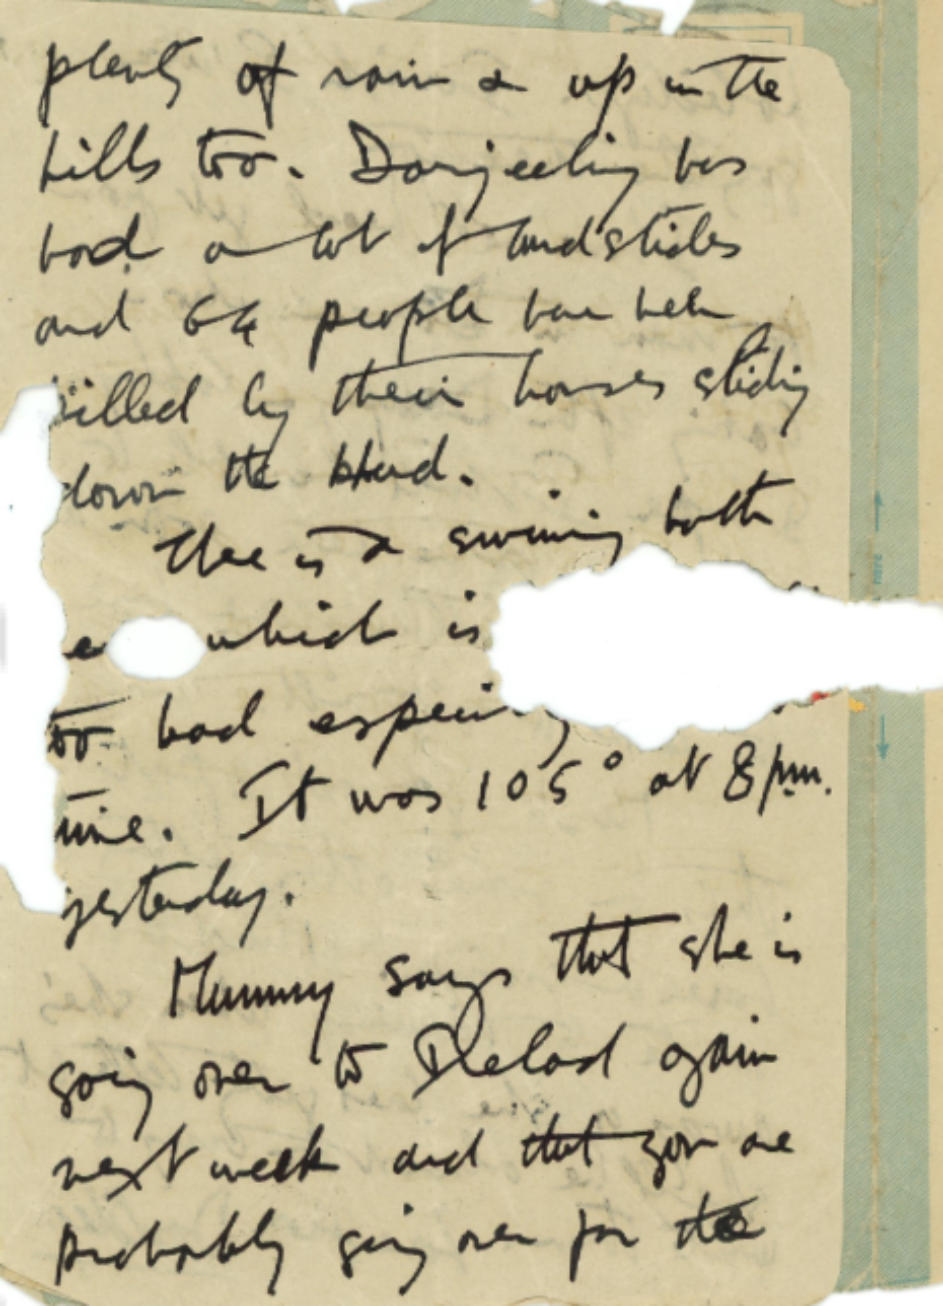 plenty of rain & up in the
hills too. Darjeeling has
had a lot of landslides
and 64 people have been
killed by their houses sliding
down the
There is a swiming bath
which is
too bad
time. It was 105° at 8 pm.
yesterday.
Mummy says that she is
going over to Ireland again
next week and that you are
probably going over for the